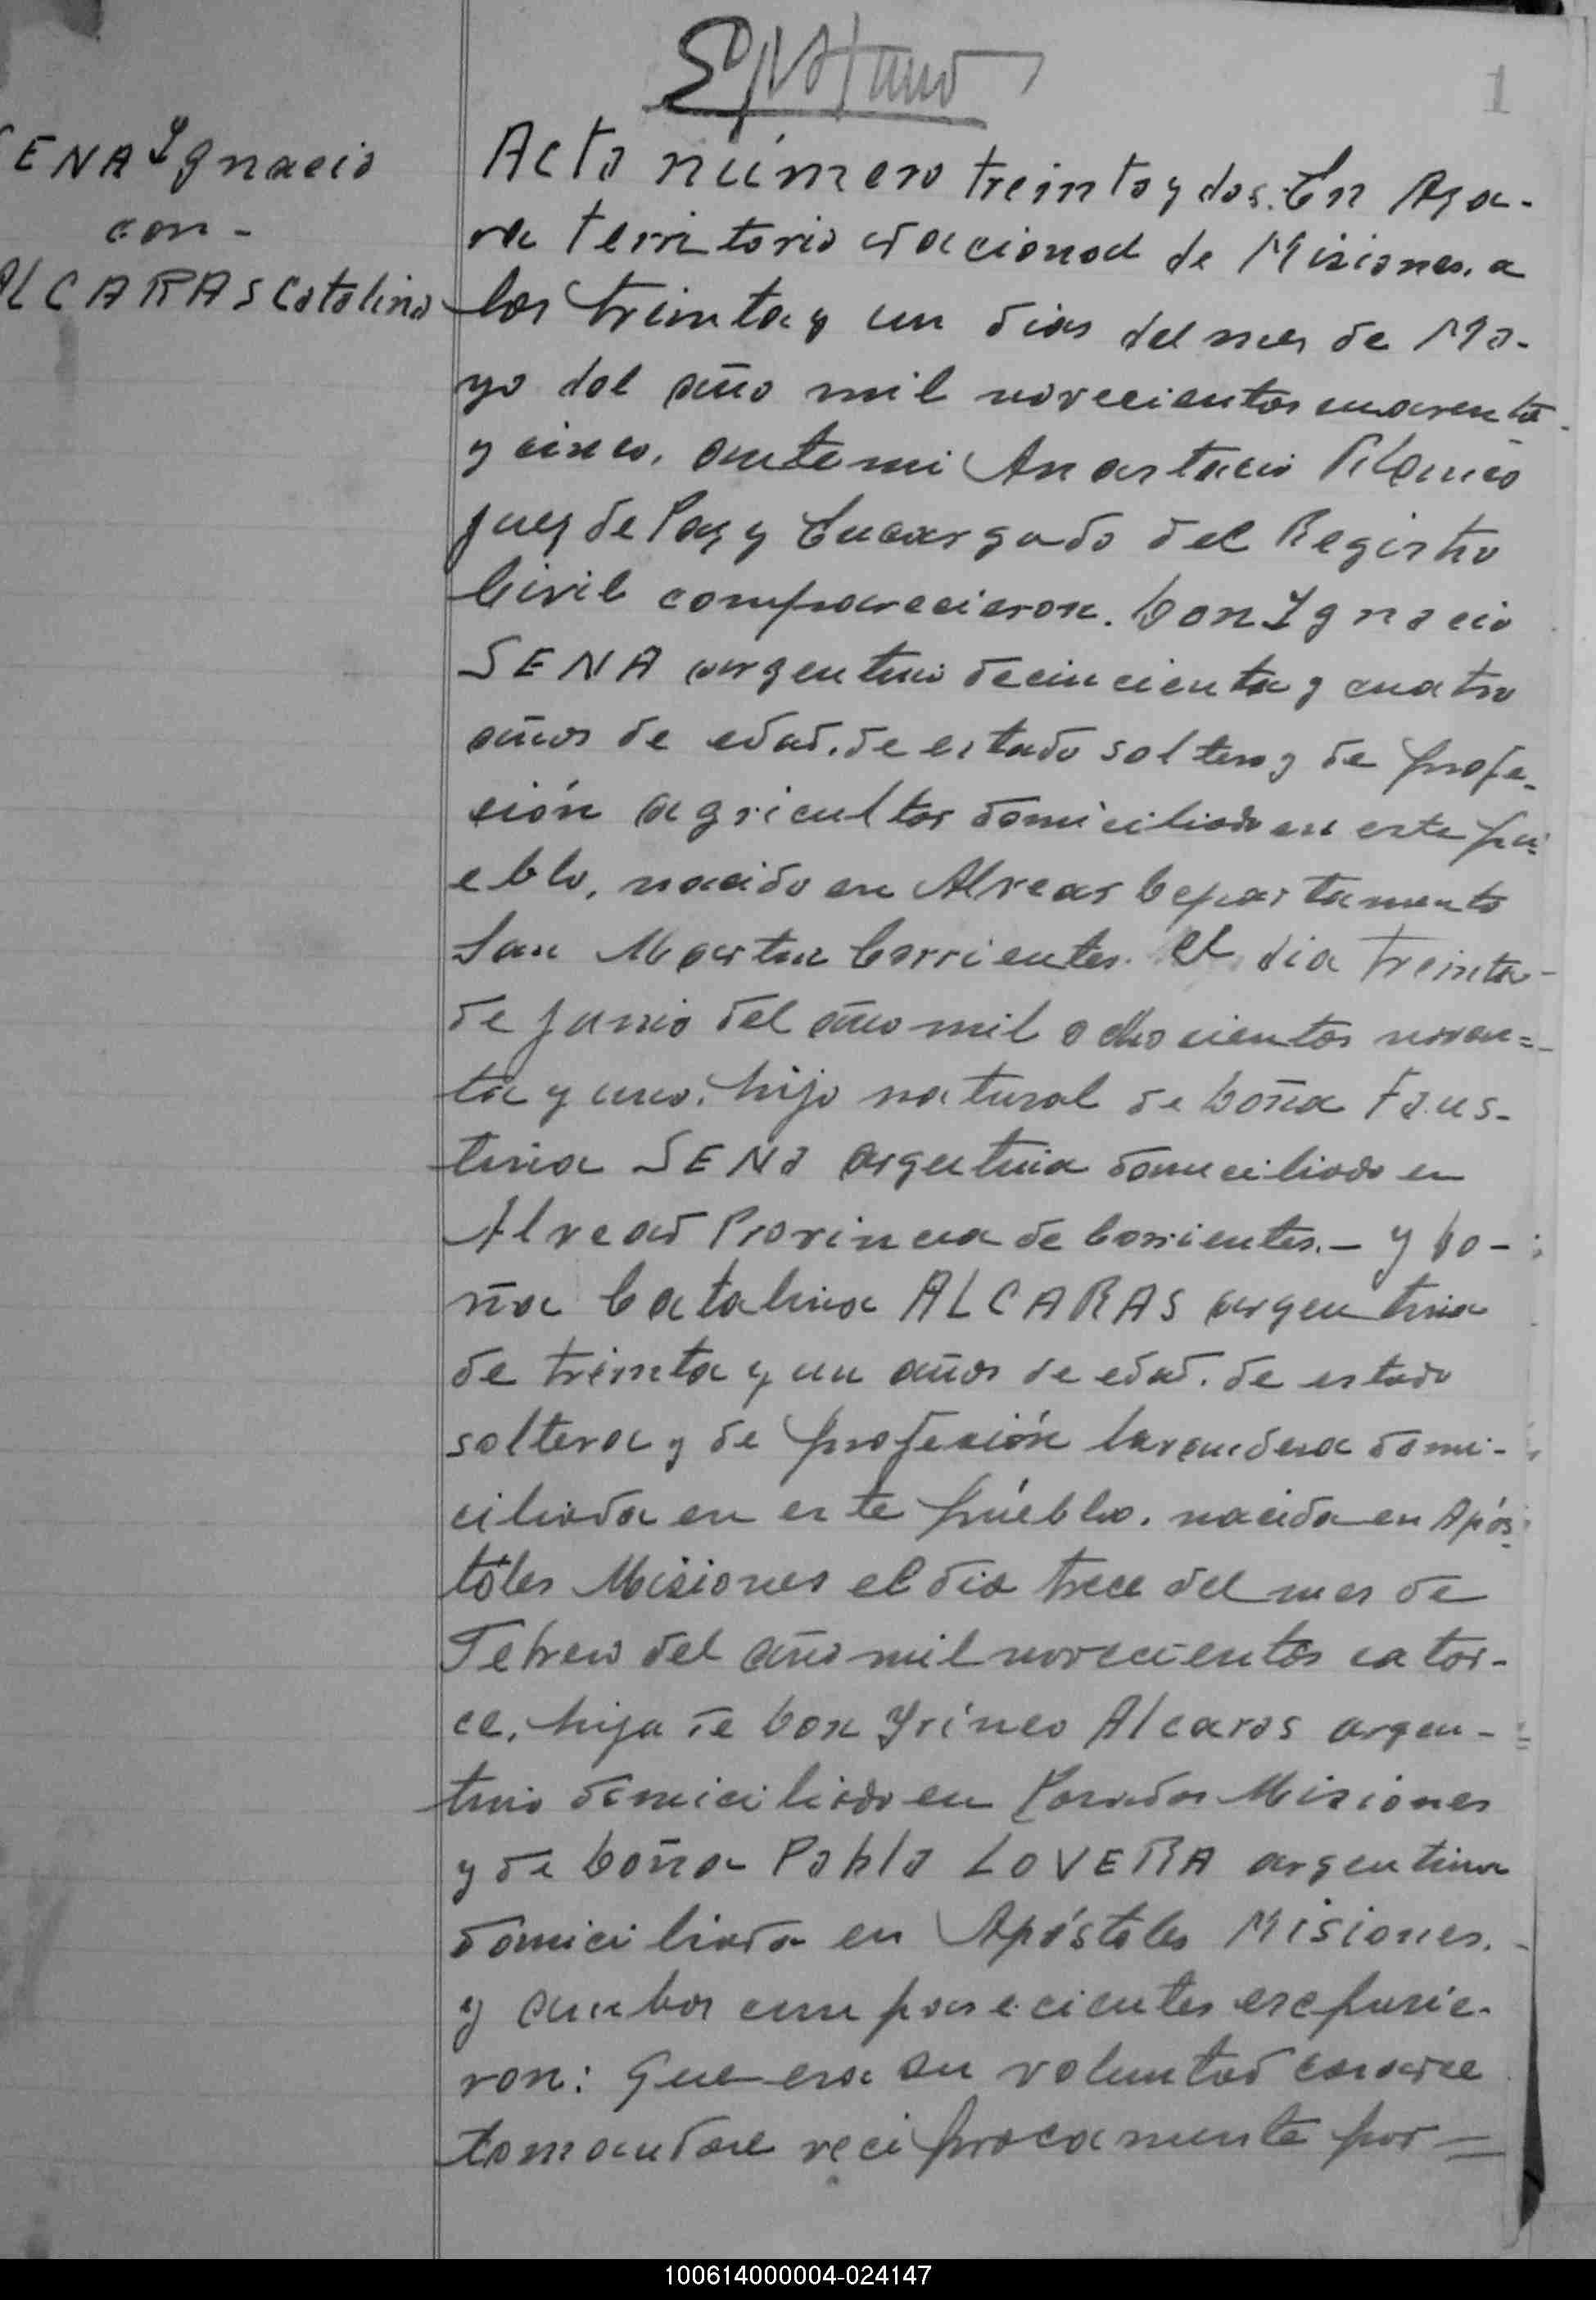 1
ENA Ignacio
con-
ALCARAS Catalina
Acta número treinta y dos. En Aza-
ra territorio Nacional de Misiones. a
los treinta y un dias del mes de Ma-
yo del año mil novecientos cuarenta
y cinco. ante mi Anastacio
Juez de Paz y Encargado del Registro
Civil comparecieron. Don Ignacio
SENA argentino de cincienta y cuatro
años de edad. de estado soltero y de profe-
ción agricultor domiciliado en este pu-
eblo, nacido en Alvear Departamento
San Martin Corrientes. el dia treinta-
de junio del año mil ochocientos noven=
ta y uno. hijo natural de Doña Faus-
tina SENA argentina domiciliado en
Alvear Provincia de Corrientes.- y Do-
ña Catalina ALCARAS argentina
de treinta y un años de edad. de estado
soltera y de profeción lavandera domi-
ciliada en este pueblo. nacida en Após-
toles Misiones el dia trece del mes de
Febrero del año mil novecientos cator-
ce. hija de Don Yríneo Alcaras argen-
tino domiciliado en Posadas Misiones
y de Doña Pabla LOVERA argentina
domiciliada en Apóstoles Misiones.
y ambos comparecientes expusie-
ron: Que era su voluntad casarse
tomandose reciprocamente por=
100614000004-024147